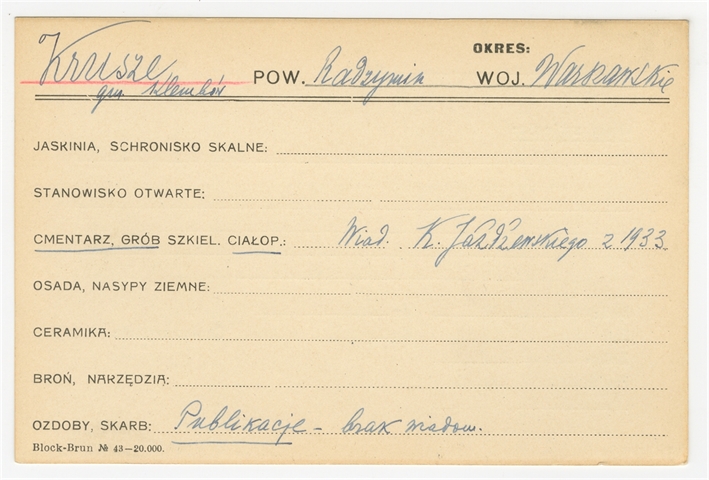 OKRES:
Krusze POW. Radzymin WOJ. Warszawskie
gm. Klembów
JASKINIA, SCHRONISKO SKALNE:
STANOWISKO OTWARTE:
CMENTARZ, GRÓB SZKIEL. CIAŁOP.: Wiad. K. Jażdżewskiego z 1933.
OSADA, NASYPY ZIEMNE:
CERAMIKA:
BROŃ, NARZĘDZIA:
OZDOBY, SKARB: Publikacje – brak wiadom.
Block-Brun № 43—20.000.